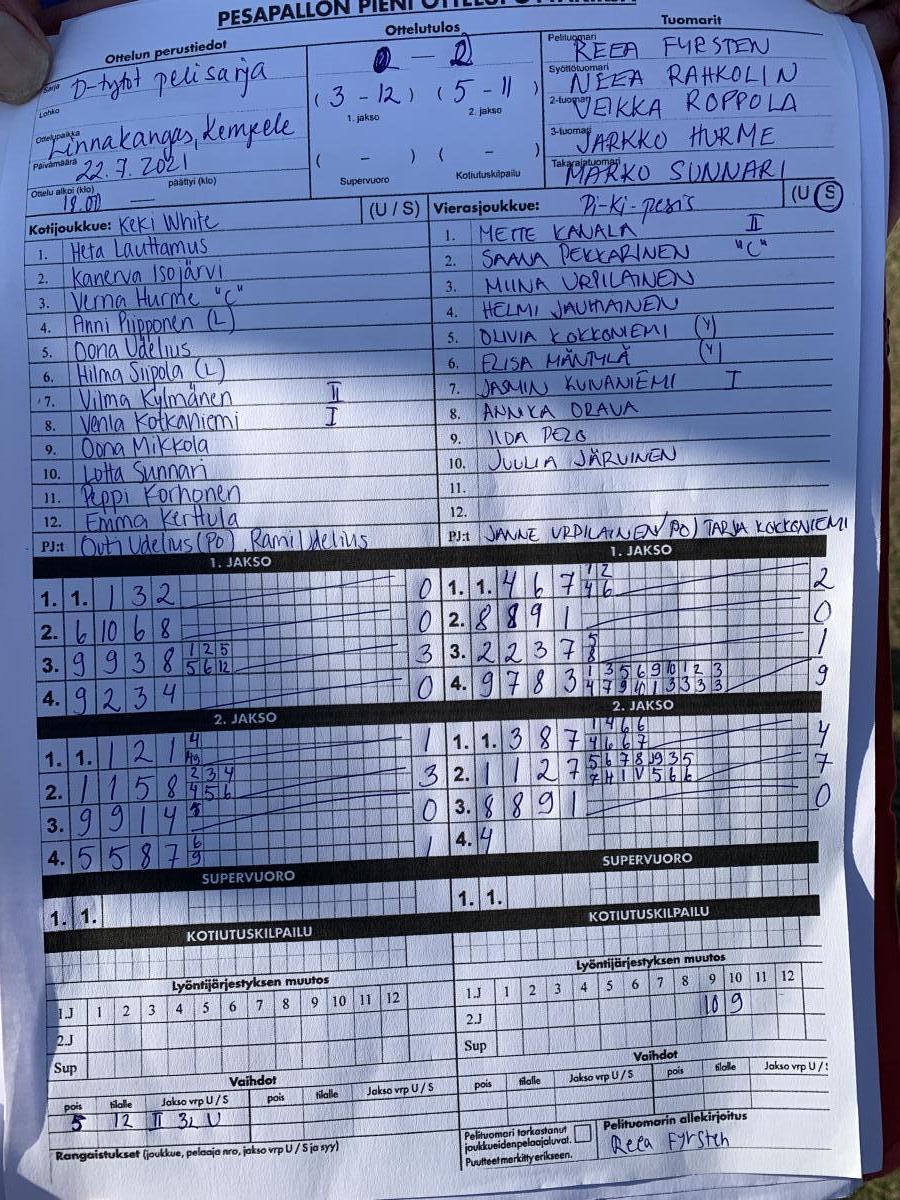 PESÄPALLON PIENI
Ottelun perustiedot
Sarja D-tytöt pelisarja
Lohko
Ottelupaikka Linnakangas, Kempele
Päivämäärä 22.7.2021
Ottelu alkoi (klo) päättyi (klo)
18.00 —
Ottelutulos
0 - 2
(3 - 12) (5 - 11)
1. jakso 2. jakso
( - ) ( - )
Supervuoro Kotiutuskilpailu
Tuomarit
Pelituomari REEA FYRSTEN
Syöttötuomari NEEA RAHKOLIN
2-tuomari VEIKKA ROPPOLA
3-tuomari JARKKO HURME
Takarajatuomari MARKO SUNNARI
Kotijoukkue: Keki White (U / S)
1. Heta Lauttamus
2. Kanerva Isojärvi
3. Verna Hurme "C"
4. Anni Piipponen (L)
5. Oona Udelius
6. Hilma Siipola (L)
7. Vilma Kylmänen II
8. Venla Kotkaniemi I
9. Oona Mikkola
10. Lotta Sunnari
11. Peppi Korhonen
12. Emma Kerttula
PJ:t Outi Udelius (PO) Rami Udelius
Vierasjoukkue: Pi-Ki-pesis (U / S)
1. METTE KANALA II
2. SAANA PEKKARINEN "C"
3. MIINA URPILAINEN
4. HELMI JAUHIAINEN
5. OLIVIA KOKKONIEMI (Y)
6. ELISA MÄNTYLÄ (Y)
7. JASMIN KUNANIEMI I
8. ANNIKA ORAVA
9. IIDA
10. JUULIA JÄRVINEN
11.
12.
PJ:t JANNE URPILAINEN (PO) TARJA KOKKONIEMI
1. JAKSO
1. 1. 1 3 2 0
2. 6 10 6 8 0
3. 9 9 3 8 1 2 5 3
5 6 12
4. 9 2 3 4 0
2. JAKSO
1. 1. 1 2 1 4 1
2. 1 1 5 8 2 3 4 3
4 5 6
3. 9 9 1 4 0
4. 5 5 8 7 6 1
9
SUPERVUORO
1. 1.
KOTIUTUSKILPAILU
1. JAKSO
1. 1. 4 6 7 1 2 2
4 6
2. 8 8 9 1 0
3. 2 2 3 7 5 1
8
4. 9 7 8 3 1 3 5 6 9 10 1 2 3 9
2. JAKSO
1. 1. 3 8 7 1 4 6 6 4
4 6 6 7
2. 1 1 2 7 5 6 7 8 3 5 7
3. 8 8 9 1 0
4. 4
SUPERVUORO
1. 1.
KOTIUTUSKILPAILU
Lyöntijärjestyksen muutos
1.J 1 2 3 4 5 6 7 8 9 10 11 12
2.J
Sup
Vaihdot
pois tilalle Jakso vrp U / S pois tilalle Jakso vrp U / S
5 12 II 3L U
Rangaistukset (joukkue, pelaaja nro, jakso vrp U / S ja syy)
Lyöntijärjestyksen muutos
1.J 1 2 3 4 5 6 7 8 9 10 11 12
2.J 10 9
Sup
Vaihdot
pois tilalle Jakso vrp U / S pois tilalle Jakso vrp U / S
Pelituomari tarkastanut
joukkueidenpelaajaluvat.
Puutteet merkitty erikseen.
Pelituomarin allekirjoitus
Reea Fyrsten